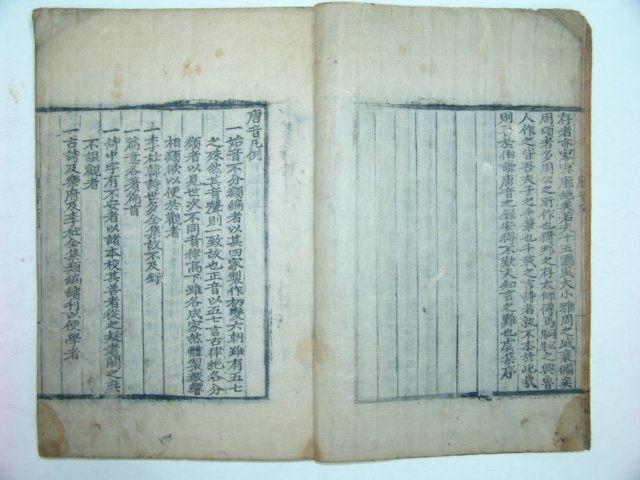 存者亦寥寥廓絶矣若夫十五國風大小雅周之盛衰備矣
周頌者多周公之所作也猗那之存太師傳焉駉駜之興魯
人作之皆吾夫子之手筆也千載之言詩者孰不本於此哉
則予於伯謙唐音之錄安得不歎夫知言之難也虞集序
唐音凡例
一始音不分類編者以其四家製作初變六朝雖有五七
之殊然其音聲則一致故也正音以五七言古律絶各分
類者以見世次不同音律高下雖各成家然體製聲響
相類欲以便於觀者
一李杜韓詩世多全集故不及錄
一篇意各著篇首
一詩中字有不安者以諸本校其善者從之疑者闕之庶
不誤觀者
一古詩及樂府及李杜全集類編續刊以便學者